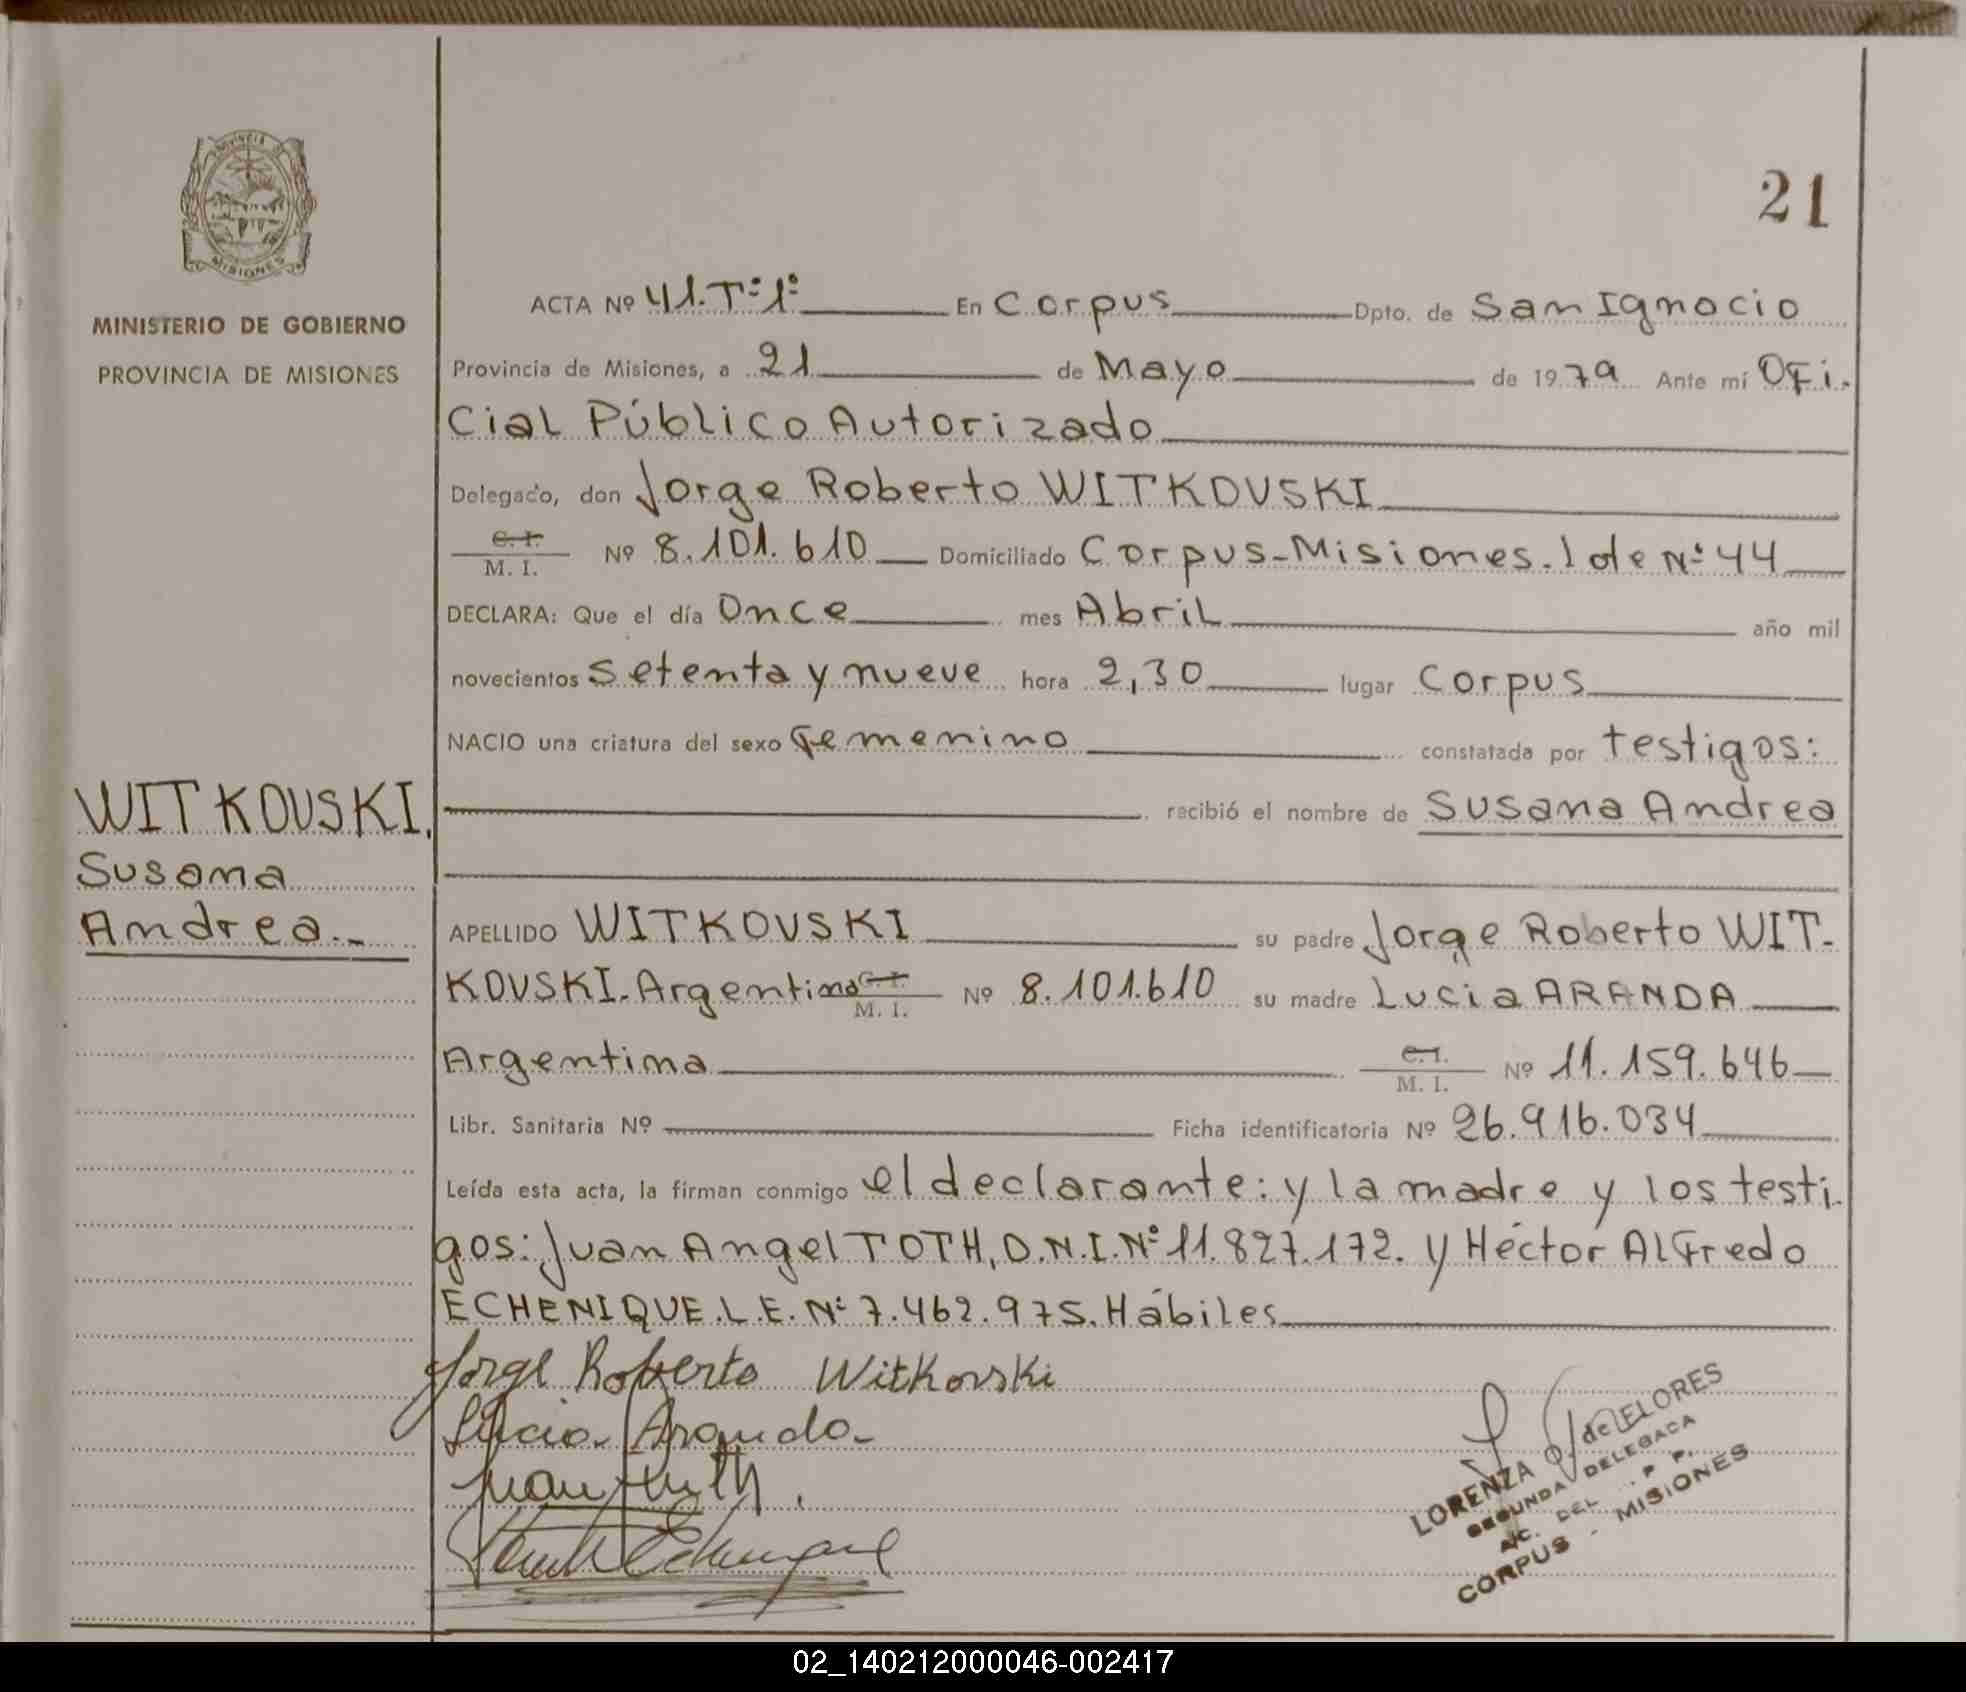 PROVINCIA DE
MISIONES
MINISTERIO DE GOBIERNO
PROVINCIA DE MISIONES
21
ACTA Nº 41.Tº1º En Corpus Dpto. de San Ignacio
Provincia de Misiones, a 21 de Mayo de 1979 Ante mí Ofi-
cial Público Autorizado
Delegado, don Jorge Roberto WITKOVSKI
C. I.
M. I. Nº 8.101.610 Domiciliado Corpus-Misiones. lote Nº 44
DECLARA: Que el día Once mes Abril año mil
novecientos setenta y nueve hora 2,30 lugar Corpus
NACIO una criatura del sexo femenino constatada por testigos:
recibió el nombre de Susana Andrea
WITKOVSKI,
Susana
Andrea.-
APELLIDO WITKOVSKI su padre Jorge Roberto WIT-
KOVSKI. Argentino C. I. M. I. Nº 8.101.610 su madre Lucia ARANDA
Argentina C. I. M. I. Nº 11.159.646
Libr. Sanitaria Nº Ficha identificatoria Nº 26.916.034
Leída esta acta, la firman conmigo el declarante: y la madre y los testi-
gos: Juan Angel TOTH, D.N.I. Nº 11.827.172. y Héctor Alfredo
ECHENIQUE. L.E. Nº 7.462.975. Hábiles
Jorge Roberto Witkovski
Lucia Aranda-
Juan Toth.
Echenique
LORENZA Q. de FLORES
SEGUNDA DELEGADA
A/C. DEL R. P. P.
CORPUS - MISIONES
02_140212000046-002417